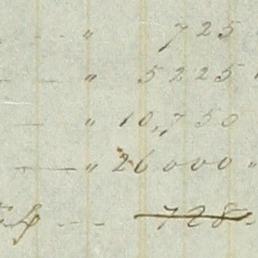 " 725
" 5225
" 10,750
" 26000 "
728